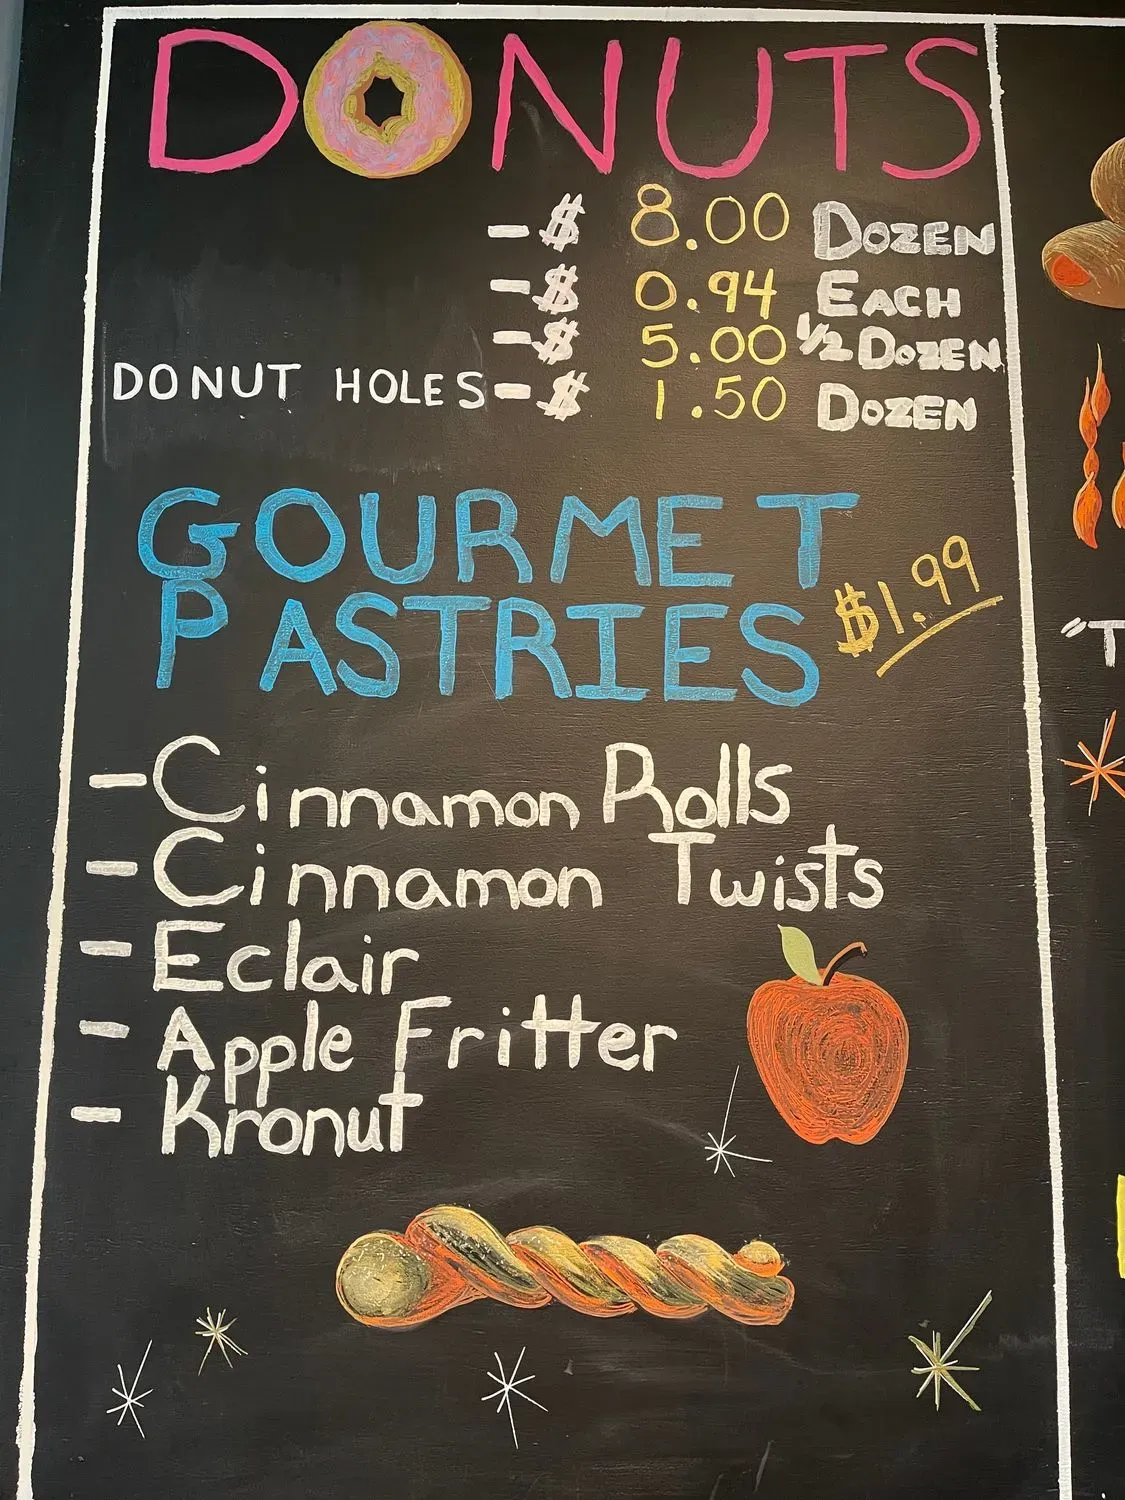 DONUTS
- $ 8.00 DOZEN
- $ 0.94 EACH
- $ 5.00 1/2 DOZEN
DONUT HOLES - $ 1.50 DOZEN
GOURMET
PASTRIES $1.99
- Cinnamon Rolls
- Cinnamon Twists
- Eclair
- Apple Fritter
- Kronut